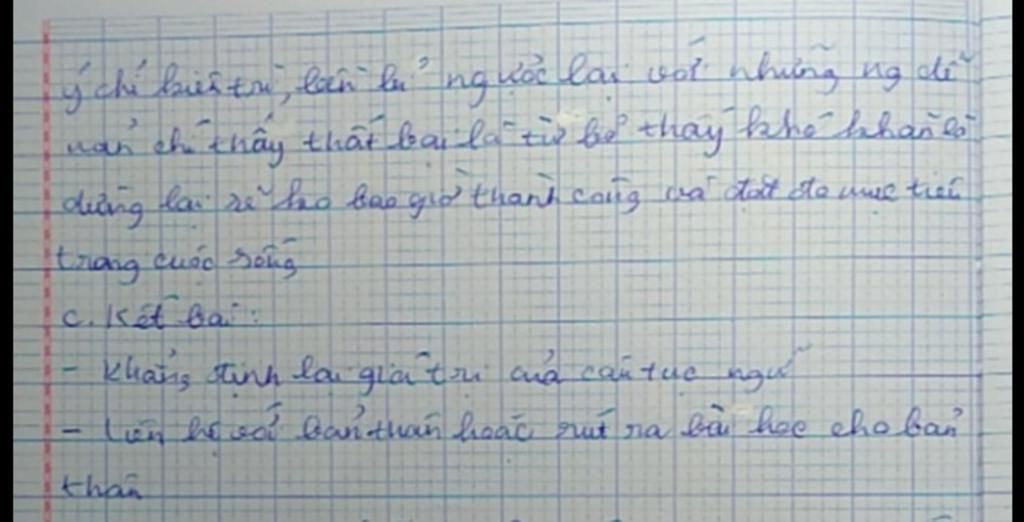 ý chí kiên trì, bền bỉ ngược lại với những ng dễ
nản chỉ thấy thất bại là từ bỏ thấy khó khăn là
dừng lại sẽ ko bao giờ thành công và đạt đc mục tiêu
trong cuộc sống
c. Kết bài:
- Khẳng định lại giá trị của câu tục ngữ
- Liên hệ với bản thân hoặc rút ra bài học cho bản
thân